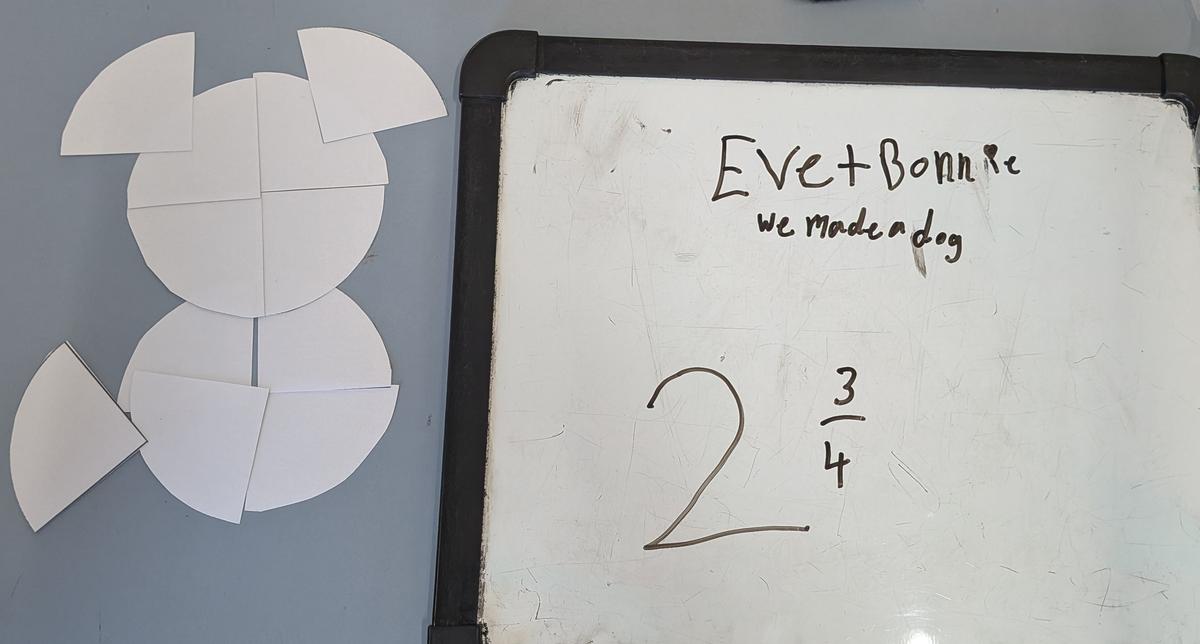 Eve + Bonnie
we made a dog
2 3/4